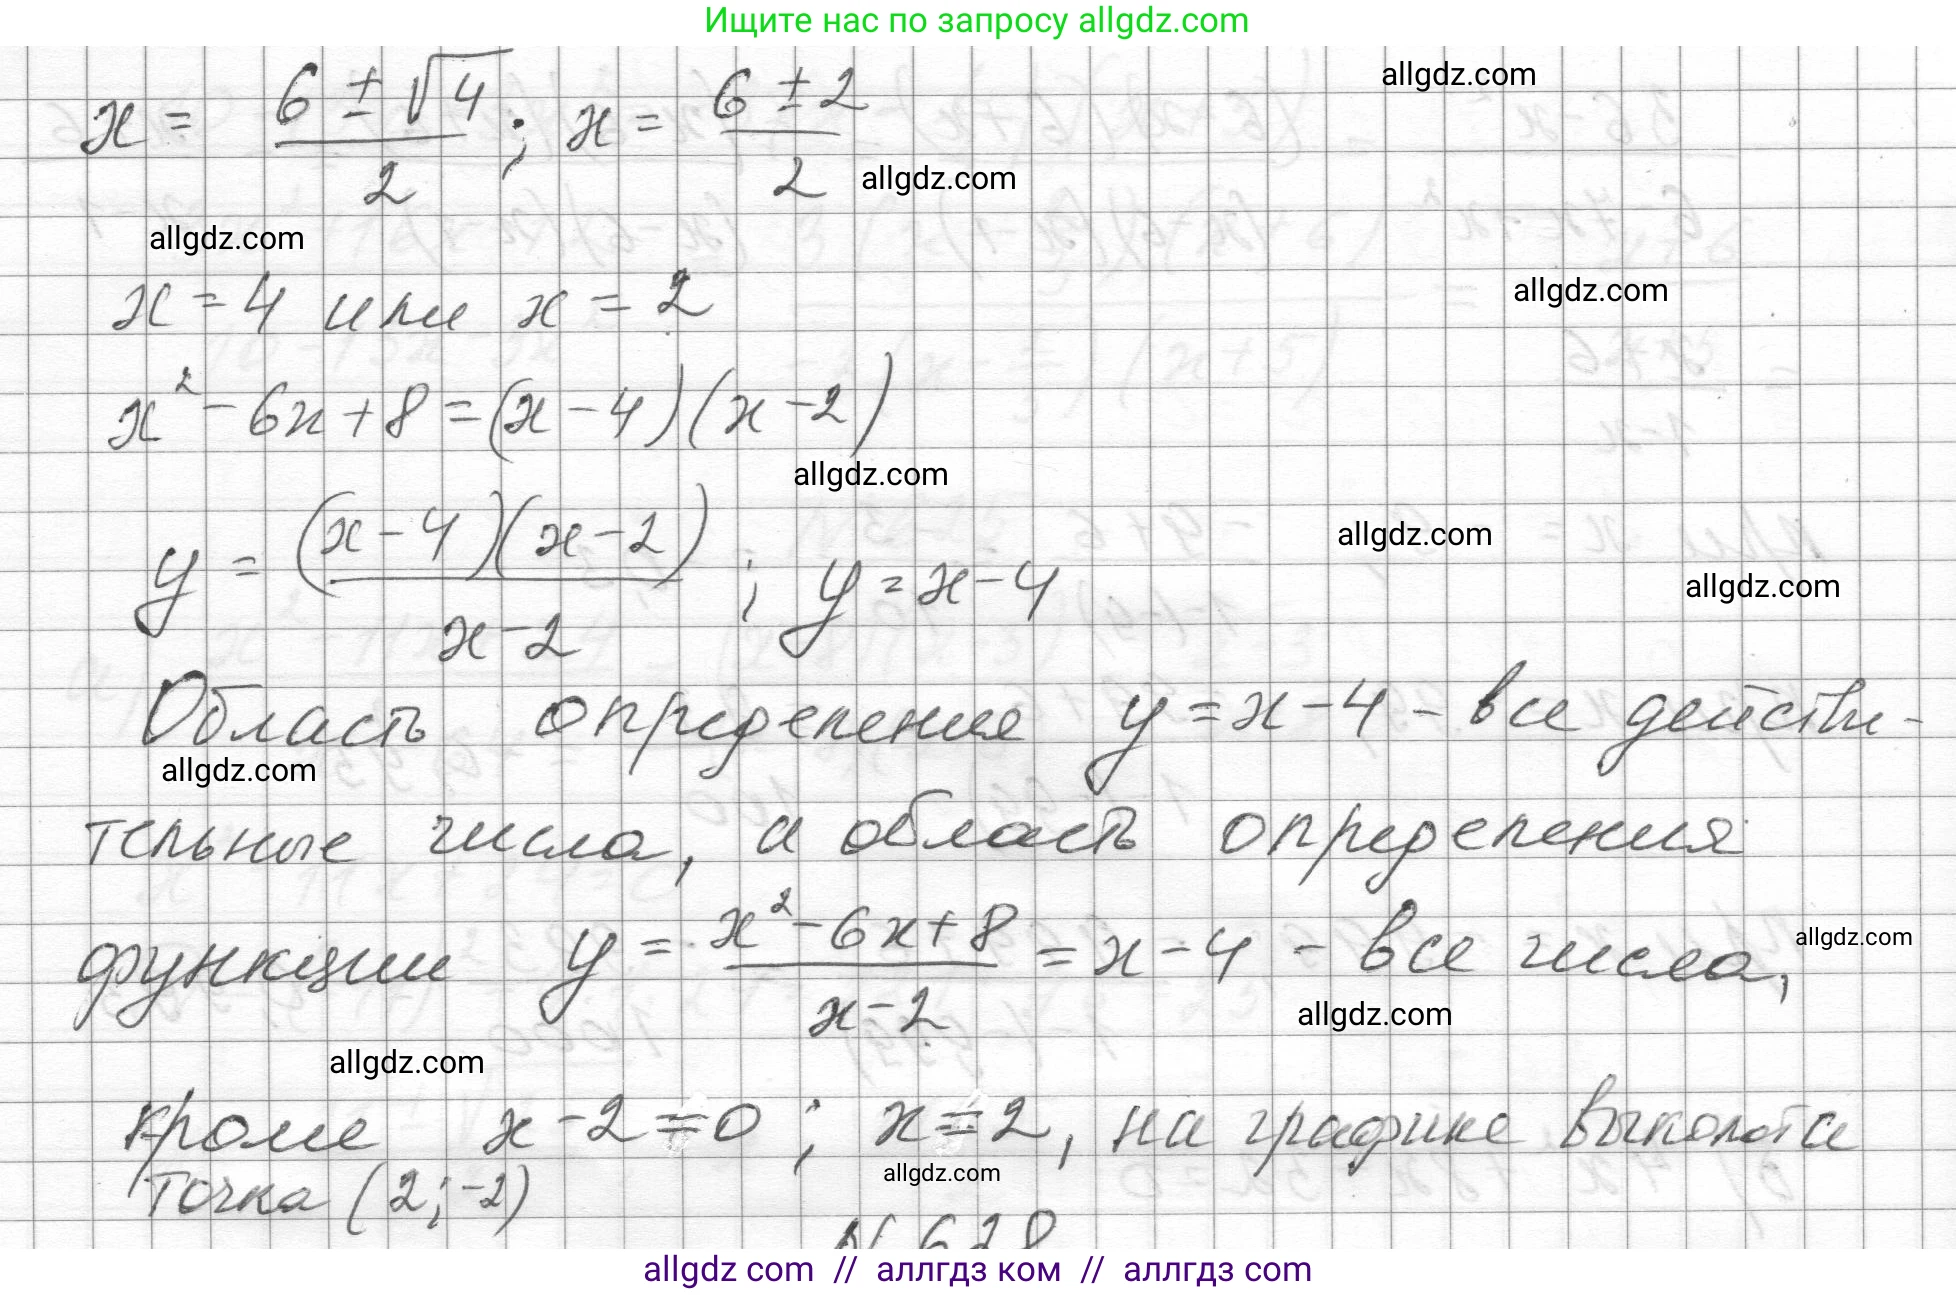 Ищите нас по запросу allgdz.com
allgdz.com
x = (6 ± √4)/2 ; x = (6 ± 2)/2
allgdz.com
allgdz.com
x = 4 или x = 2
allgdz.com
x² - 6x + 8 = (x - 4)(x - 2)
allgdz.com
y = ((x - 4)(x - 2))/(x - 2) ; y = x - 4
allgdz.com
allgdz.com
Область определения y = x - 4 - все действи-
allgdz.com
тельные числа, а область определения
функции y = (x² - 6x + 8)/(x - 2) = x - 4 - все числа,
allgdz.com
allgdz.com
allgdz.com
кроме x - 2 = 0 ; x = 2, на графике выколота
allgdz.com
точка (2; -2)
N 628
allgdz com // аллгдз ком // аллгдз com